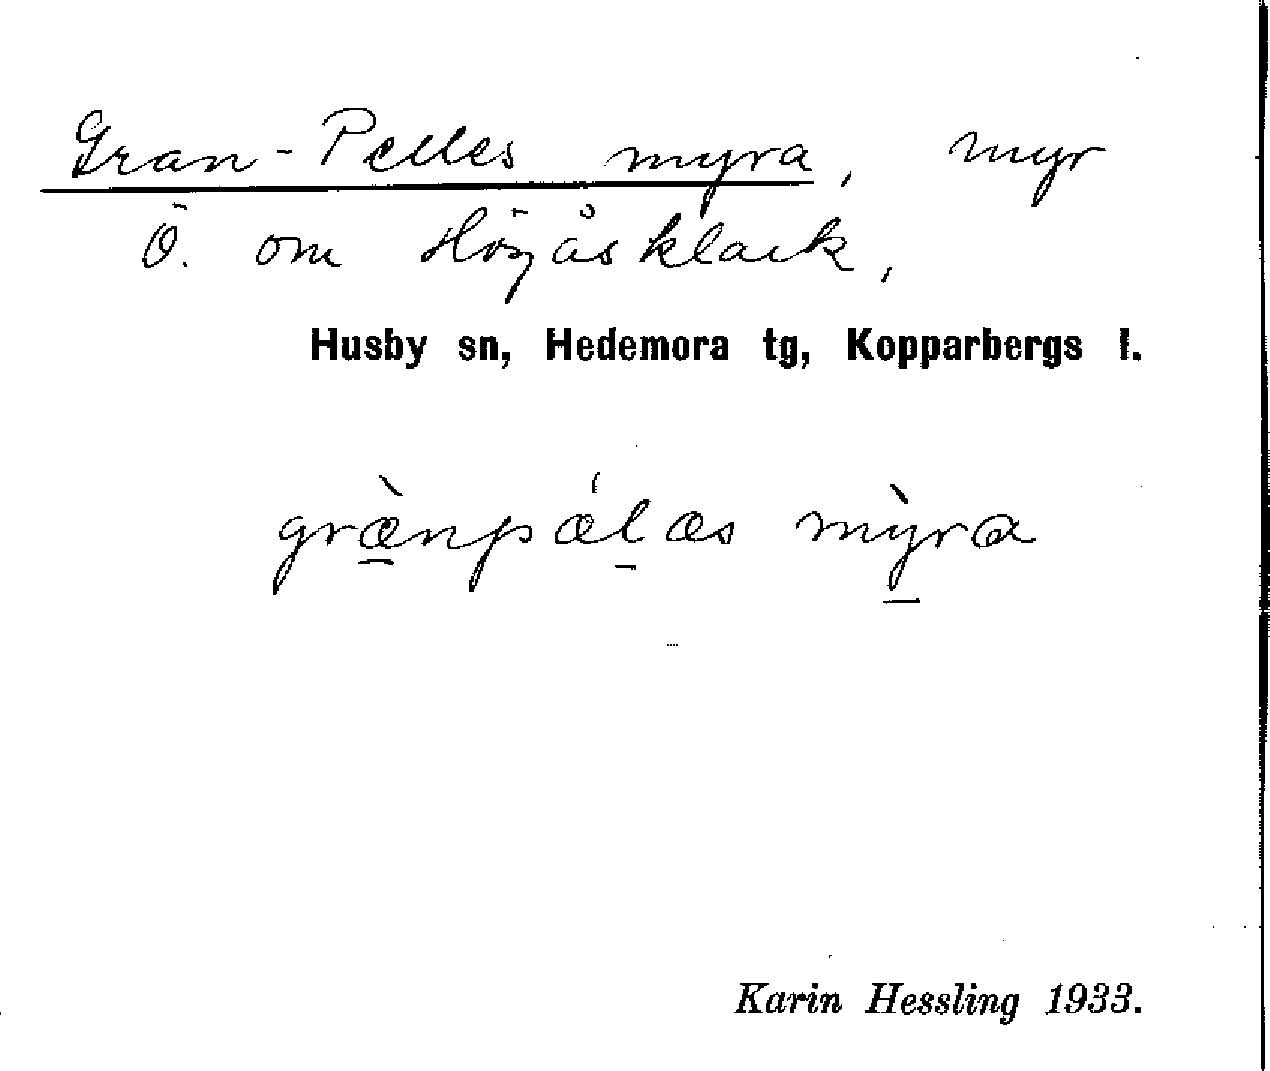 Gran-Pelles myra, myr
Ö. om Höjåsklack,
Husby sn, Hedemora tg, Kopparbergs l.
græ̀npǽlæs mỳra
Karin Hessling 1933.